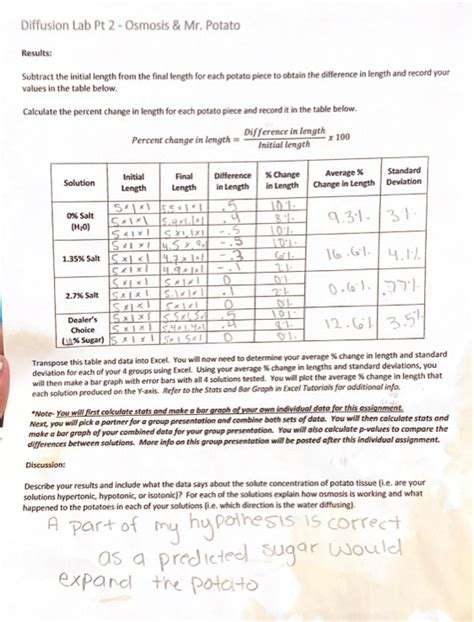 Diffusion Lab Pt 2 - Osmosis & Mr. Potato
Results:
Subtract the initial length from the final length for each potato piece to obtain the difference in length and record your
values in the table below.
Calculate the percent change in length for each potato piece and record it in the table below.
Percent change in length = Difference in length / Initial length x 100
Solution Initial Length Final Length Difference in Length % Change in Length Average % Change in Length Standard Deviation
0% Salt (H₂O)
5x1x1 .5 10%
5x1x1 5.4x1.1x1 .4 8% 9.3%
5x1x1 -.5 10%
1.35% Salt
5x1x1 -.5 10%
5x1x1 4.7x1x1 -.3 6% 4.1%
5x1x1 -.1 2%
2.7% Salt
5x1x1 5x1x1 0 0%
5x1x1 5.1x1x1 .1 2% 0.6%
5x1x1 5x1x1 0 0%
Dealer's Choice % Sugar)
5x1x1 .5 10%
5x1x1 .4 8% 12.6% 3.5%
5x1x1 0 0%
Transpose this table and data into Excel. You will now need to determine your average % change in length and standard
deviation for each of your 4 groups using Excel. Using your average % change in lengths and standard deviations, you
will then make a bar graph with error bars with all 4 solutions tested. You will plot the average % change in length that
each solution produced on the Y-axis. Refer to the Stats and Bar Graph in Excel Tutorials for additional info.
*Note- You will first calculate stats and make a bar graph of your own individual data for this assignment.
Next, you will pick a partner for a group presentation and combine both sets of data. You will then calculate stats and
make a bar graph of your combined data for your group presentation. You will also calculate p-values to compare the
differences between solutions. More info on this group presentation will be posted after this individual assignment.
Discussion:
Describe your results and include what the data says about the solute concentration of potato tissue (i.e. are your
solutions hypertonic, hypotonic, or isotonic)? For each of the solutions explain how osmosis is working and what
happened to the potatoes in each of your solutions (i.e. which direction is the water diffusing).
A part of my hypothesis is correct
as a predicted sugar would
expand the potato